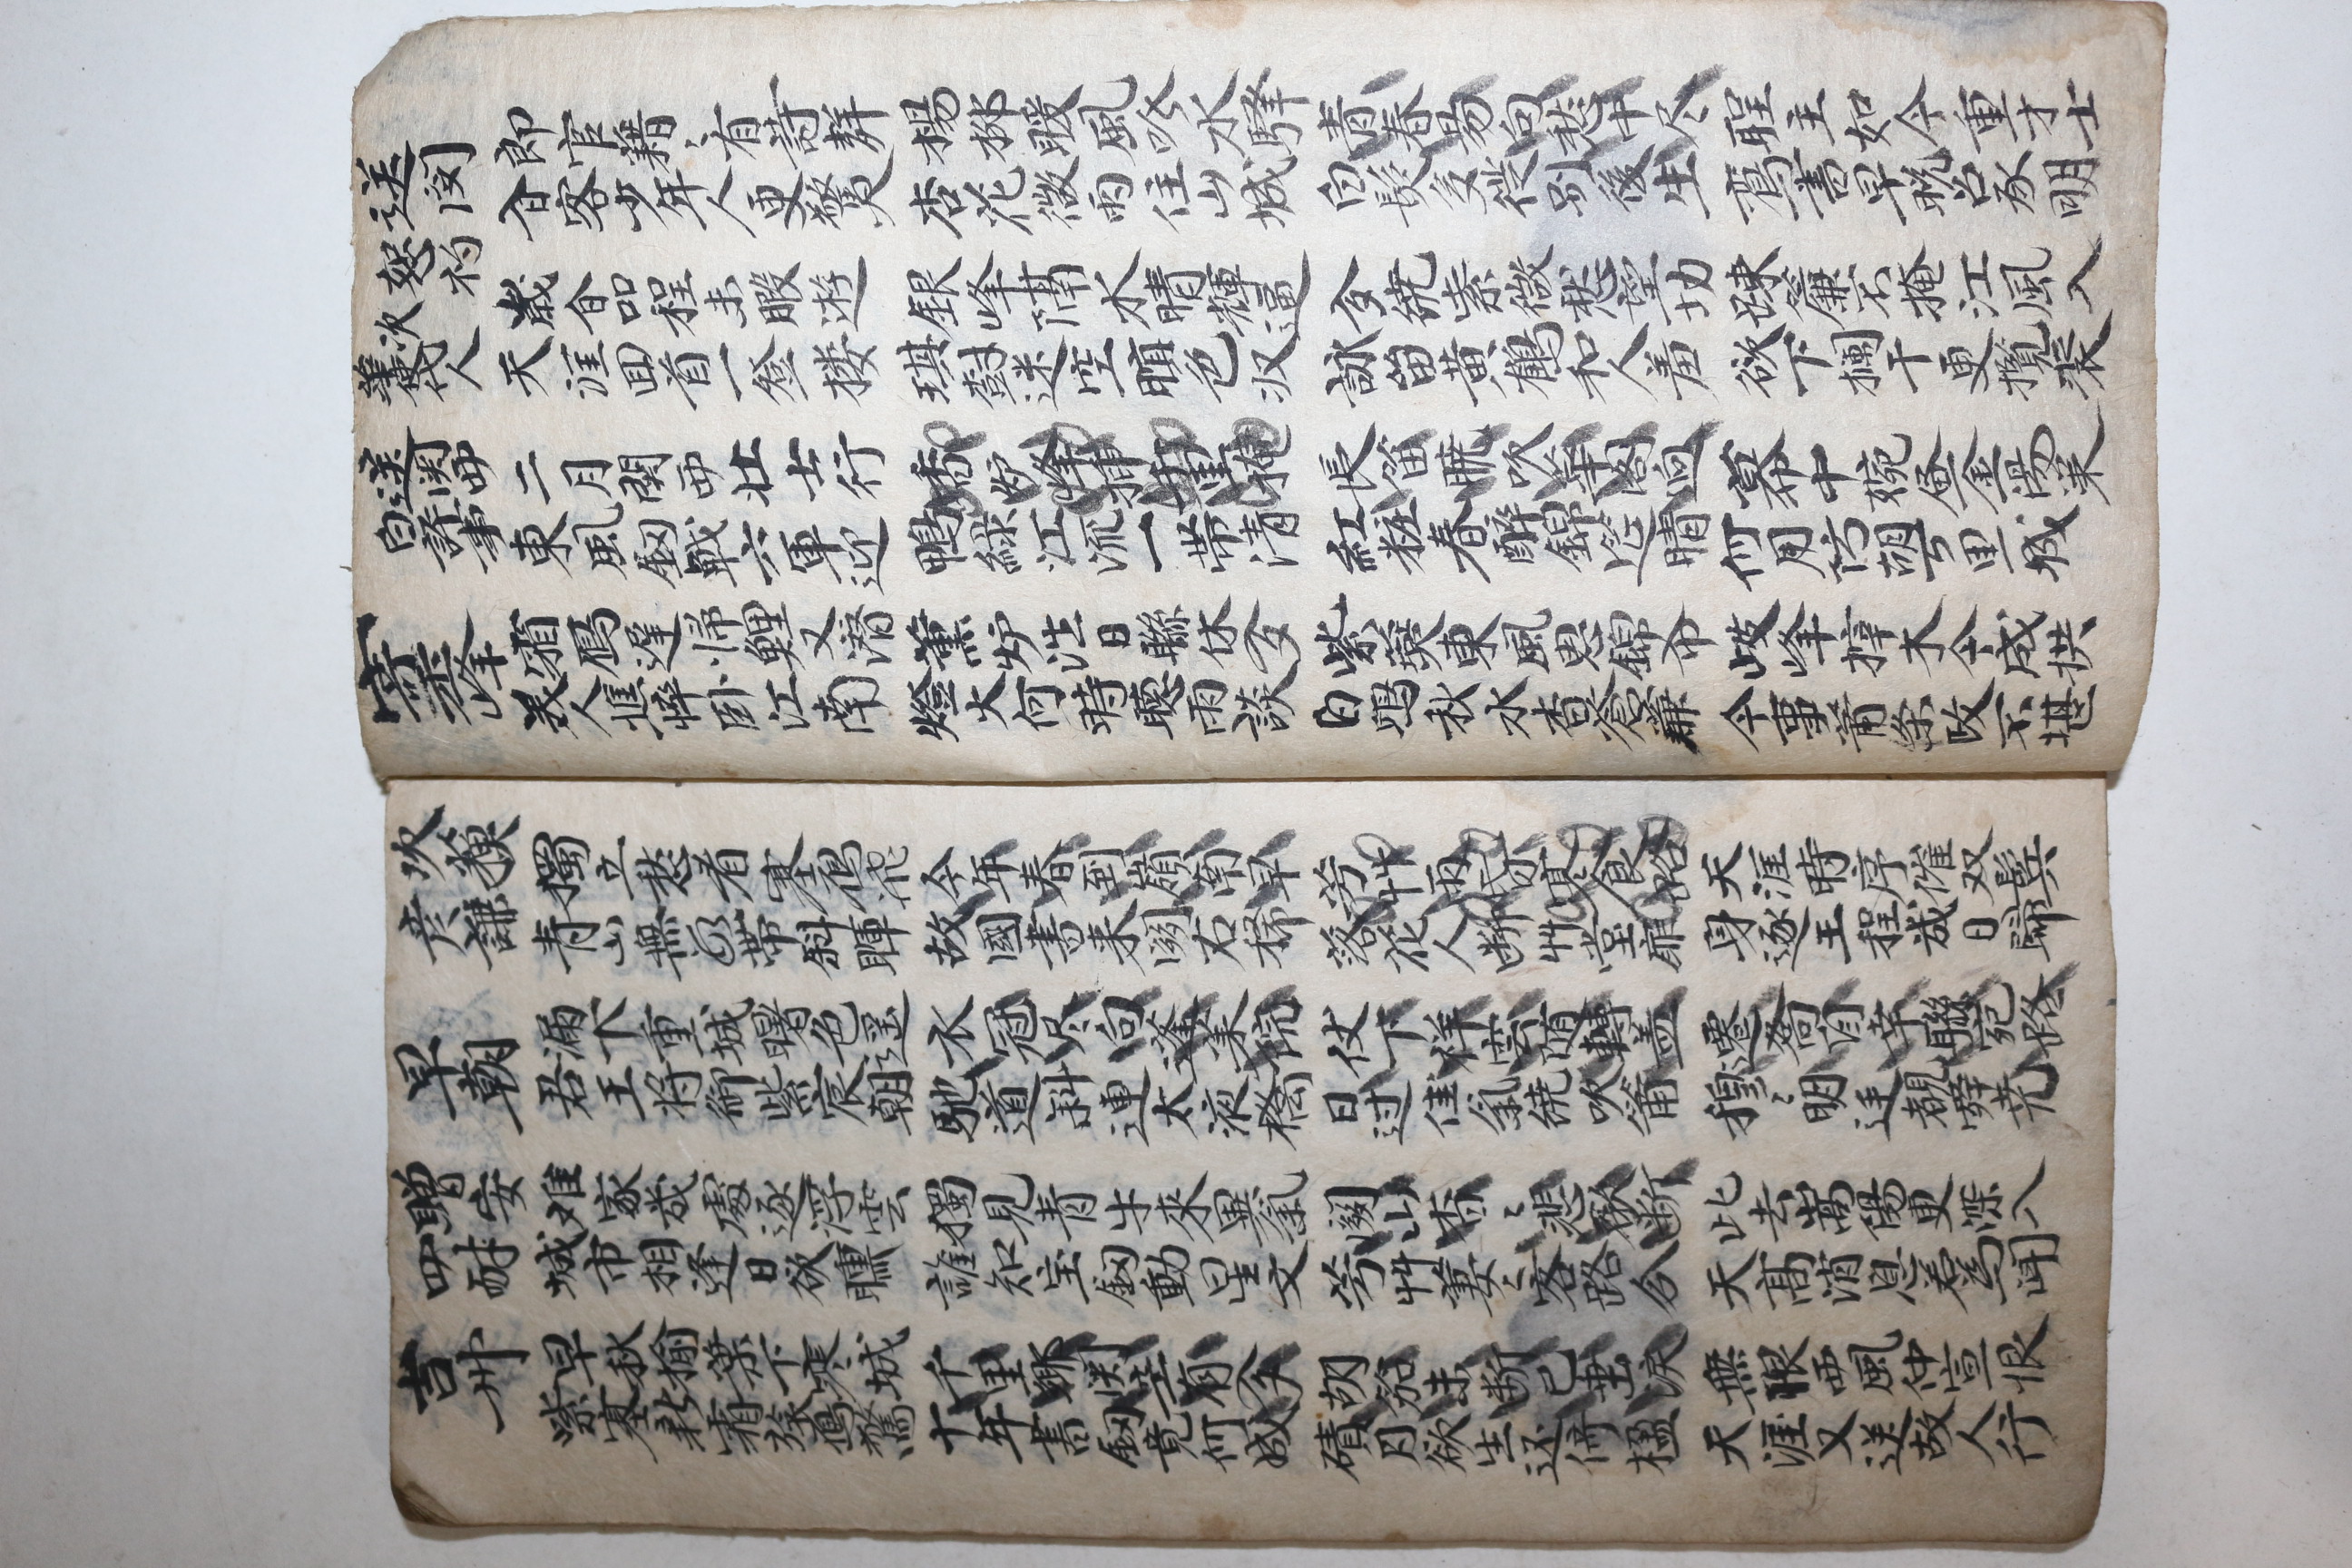 送閔 恕礿 郎官藉〻有詩聲 楊柳暖風吹水驛 青春易向愁中尽 聖主如今重才士
客少年人更驚 杏花微雨住山城 白髮多從別後生 鴈書早晩召承明
次 華使代人 歲合品程未暇遊 銀峰隔水晴輝逼 繞紫微愁望切 踈簾不掩江風入
天涯囬首一登楼 琪樹迷空暝色收 詠留黄鶴和人羞 欲下欄干更攬裘
送関西 二月関西壮士行 香炉峰揷千里掩 長笛暁吹華閣逈 幕中婉画金湯策
白評事 東風釰戟六軍迎 鴨綠江流一帶清 紅粧春醉錦筵晴 何用防胡万里城
寄玉峰 霜鴈遲帰鯉又潛 薰炉浩日聯休 紫 東風思錦 峰 木今成拱
美人憔悴卧江南 燈火何時聽雨談 白鴎秋水杳蒼蒹 今事蕭条政不堪
次 彦謙 獨立愁看塞鴈飛 今年春到嶺南早 芳艸雨昏寒食路 天涯時序催双鬂
青山無 帶斜暉 故國書来闕右稀 落花人断艸堂扉 身逐王程幾日歸
早朝 漏下重城曙色遥 衣冠尽向蓬莱院 仗下祥雲随轉盖 遷喬自幸聯宛路
君王将御紫宸朝 馳道斜連太液橋 日过佳氣繞吹簫 穆〻明廷覩舜尭
贈安 难家幾處逐浮雲 獨見青牛來異氣 關山杳〻悲歌断 此去嵩陽更深入
四耐 城市相逢日欲曛 誰知宝釰動星文 芳艸萋〻客路分 天髙消息若為聞
吉州 早秋揄葉下寒城 千里鄉関空有夢 胡笳未断已垂淚 無限西風仲宣恨
紫塞新霜旅鴈驚 十年書釰竟何成 磧月欲生还倚楹 天涯又送故人行